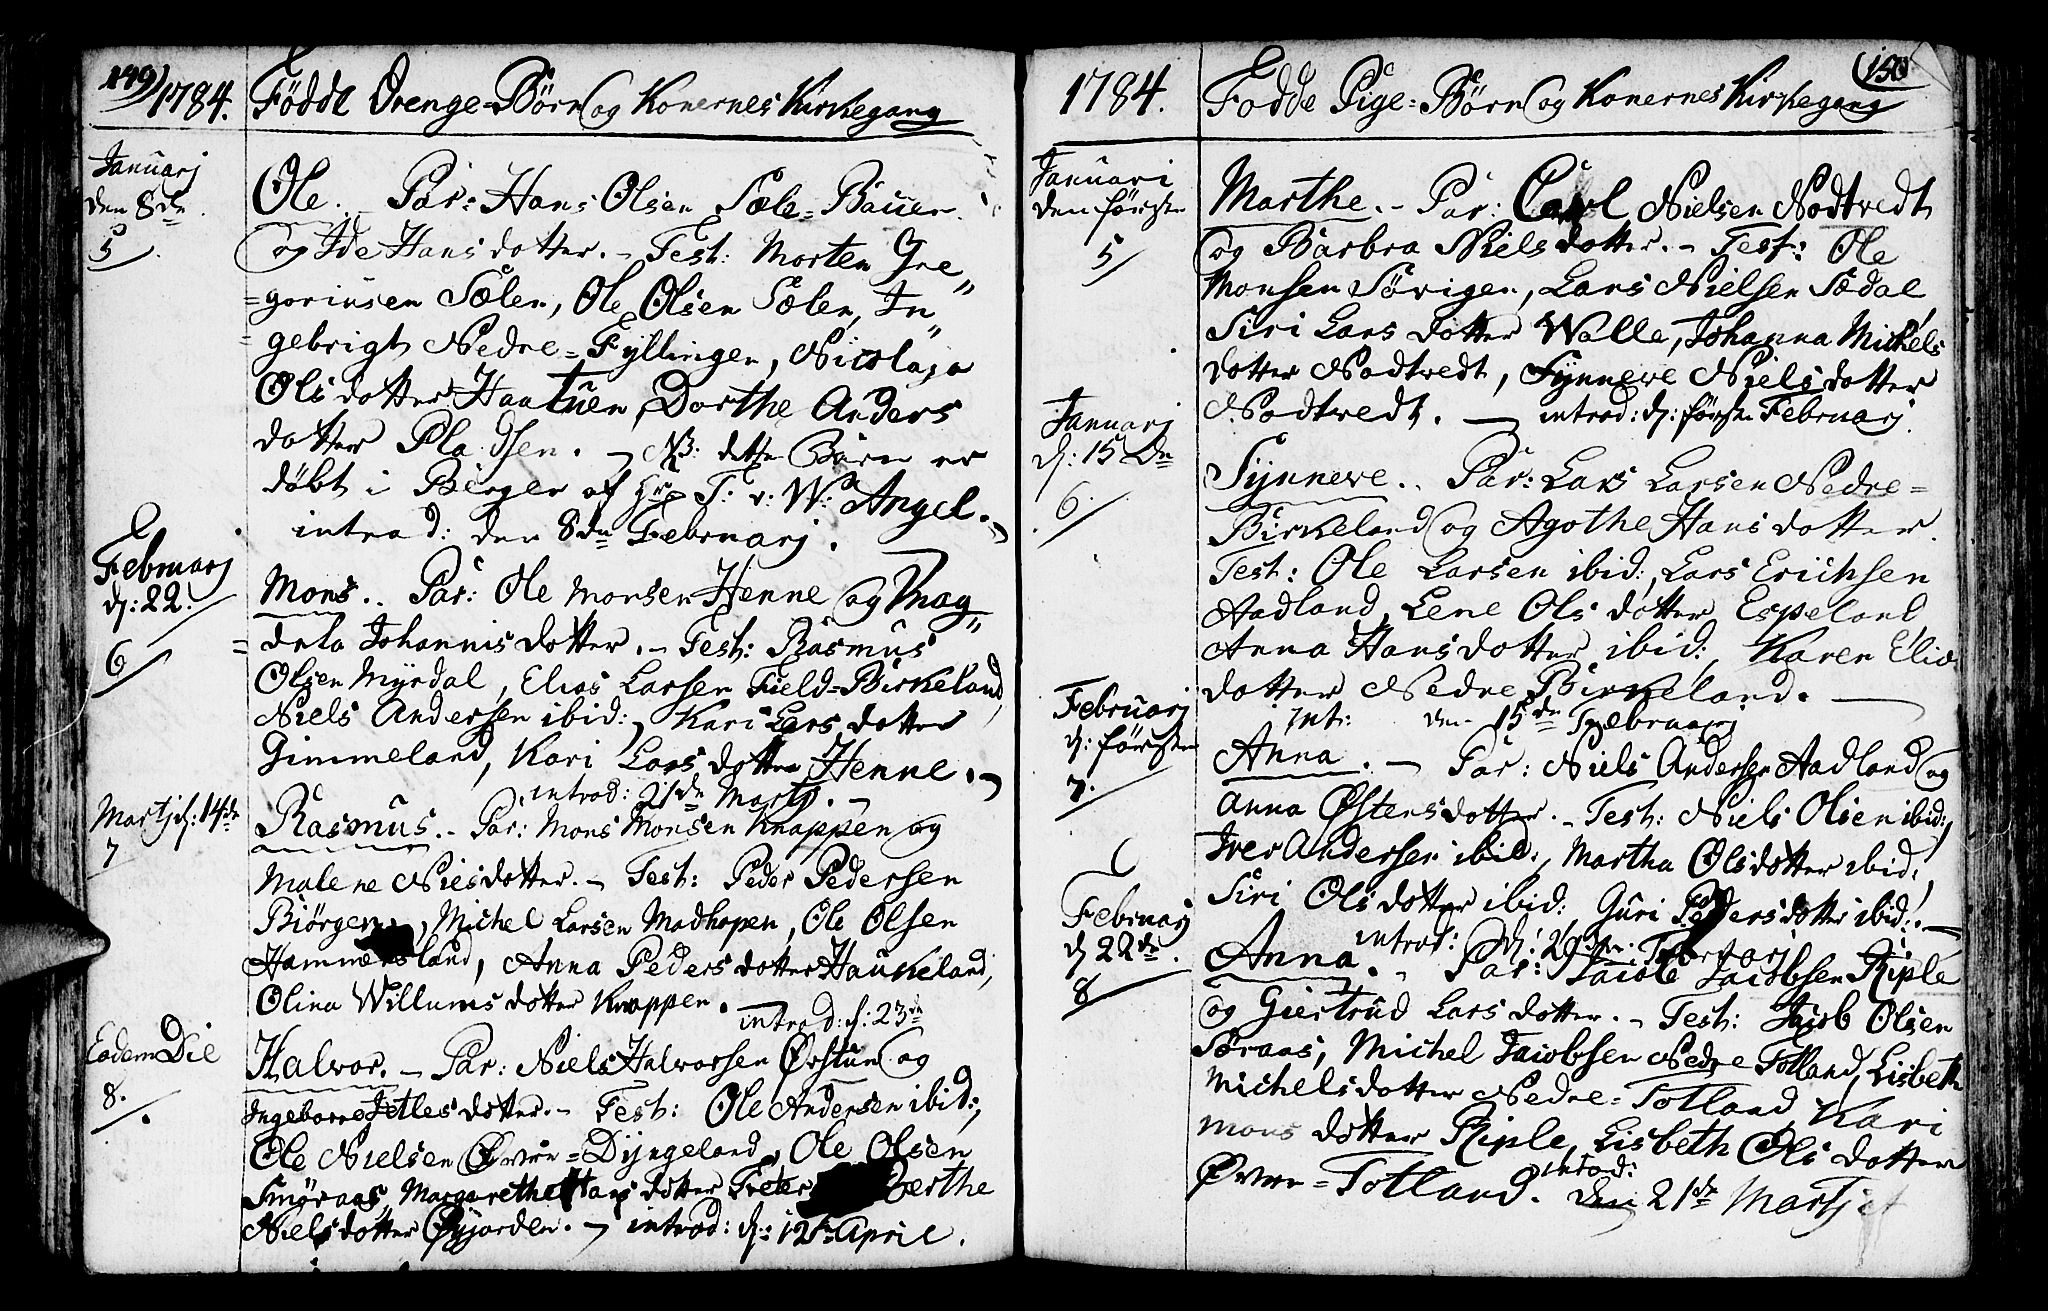 149) 1784. Fødde Drenge-Børn og Konernes Kirkegang
Januarj
den 8de
5
Ole. Par: Hans Olsen Sæle-Bauer
og Ide Hansdotter. Test: Morten Gre,,
=goriusen Sælen, Ole Olsen Sælen, In,,
=gebrigt Nedre=Fyllingen, Nicolaja
Olsdotter Haatuen, Dorthe Anders
dotter Pladsen. NB: dette Barn er
døbt i Bergen af Hr T: v: W: Angel.
introd: den 8de Februarj.
Februarj
d: 22.
6
Mons.. Par: Ole Monsen Henne og Mag,,
=dela Johannisdotter. Test: Rasmus
Olsen Myrdal, Elias Larsen Field=Birkeland,
Niels Andersen ibid:, Kari Lars dotter
Gimmeland, Kari Lars dotter Henne.
introd: 21de Martj.
Martj d: 14de
7
Rasmus. Par: Mons Monsen Knappen og
Malene Niesdotter. Test: Peder Pedersen
Biørgen, Michel Larsen Madhopen, Ole Olsen
Hammersland, Anna Peders dotter Haukeland,
Olina Willums dotter Knappen.
introd: d: 23de
Eodem Die
8.
Halvor. Par: Niels Halvorsen Ørstun og
Ingeborre Jetlesdotter. Test: Ole Andersen ibid:,
Ole Nielsen Øvre=Dyngeland, Ole Olsen
Smøraas, Margarethe Hans dotter Berthe
Niels dotter Øyjorden. introd: d: 12te April.
1784. Fødde Pige=Børn og Konernes Kirkegang (150
Januari
den første
5
Marthe. Par: Carl Nielsen Nodtvedt
og Barbra Nielsdotter. Test: Ole
Monsen Sørigen, Lars Nielsen Sædal
Siri Lars dotter Walle, Johanna Michels
dotter Nodtvedt, Synneve Nielsdotter
Nodtvedt. introd: d: første Februarj.
Januarj
d: 15de
6.
Synneve.. Par: Lars Larsen Nedre=
Birkeland og Agothe Hansdotter.
Test: Ole Larsen ibid:, Lars Erichsen
Aadland, Lene Ols dotter Espeland,
Anna Hansdotter ibid:, Karen Elia
dotter Nedre Birkeland.
int: den 15de Februarj
Februarj
d: første
7.
Anna. Par: Niels Andersen Aadland og
Anna Østensdotter. Test: Niels Olsen ibid:,
Iver Andersen ibid:, Martha Olsdotter ibid,
Siri Olsdotter ibid:, Guri Pedersdotter ibid:.
introd: d: 29de Februarj
Februarj
d 22de.
8
Anna. Par: Jacob Jacobsen Riple
og Giertrud Lars dotter. Test: Jacob Olsen
Søraas, Michel Jacobsen Nedre Totland, Lisbeth
Michelsdotter Nedre=Totland Kari
Mons dotter Riple, Lisbeth Ols dotter
Øvre=Totland. introd:
den 21de Martj